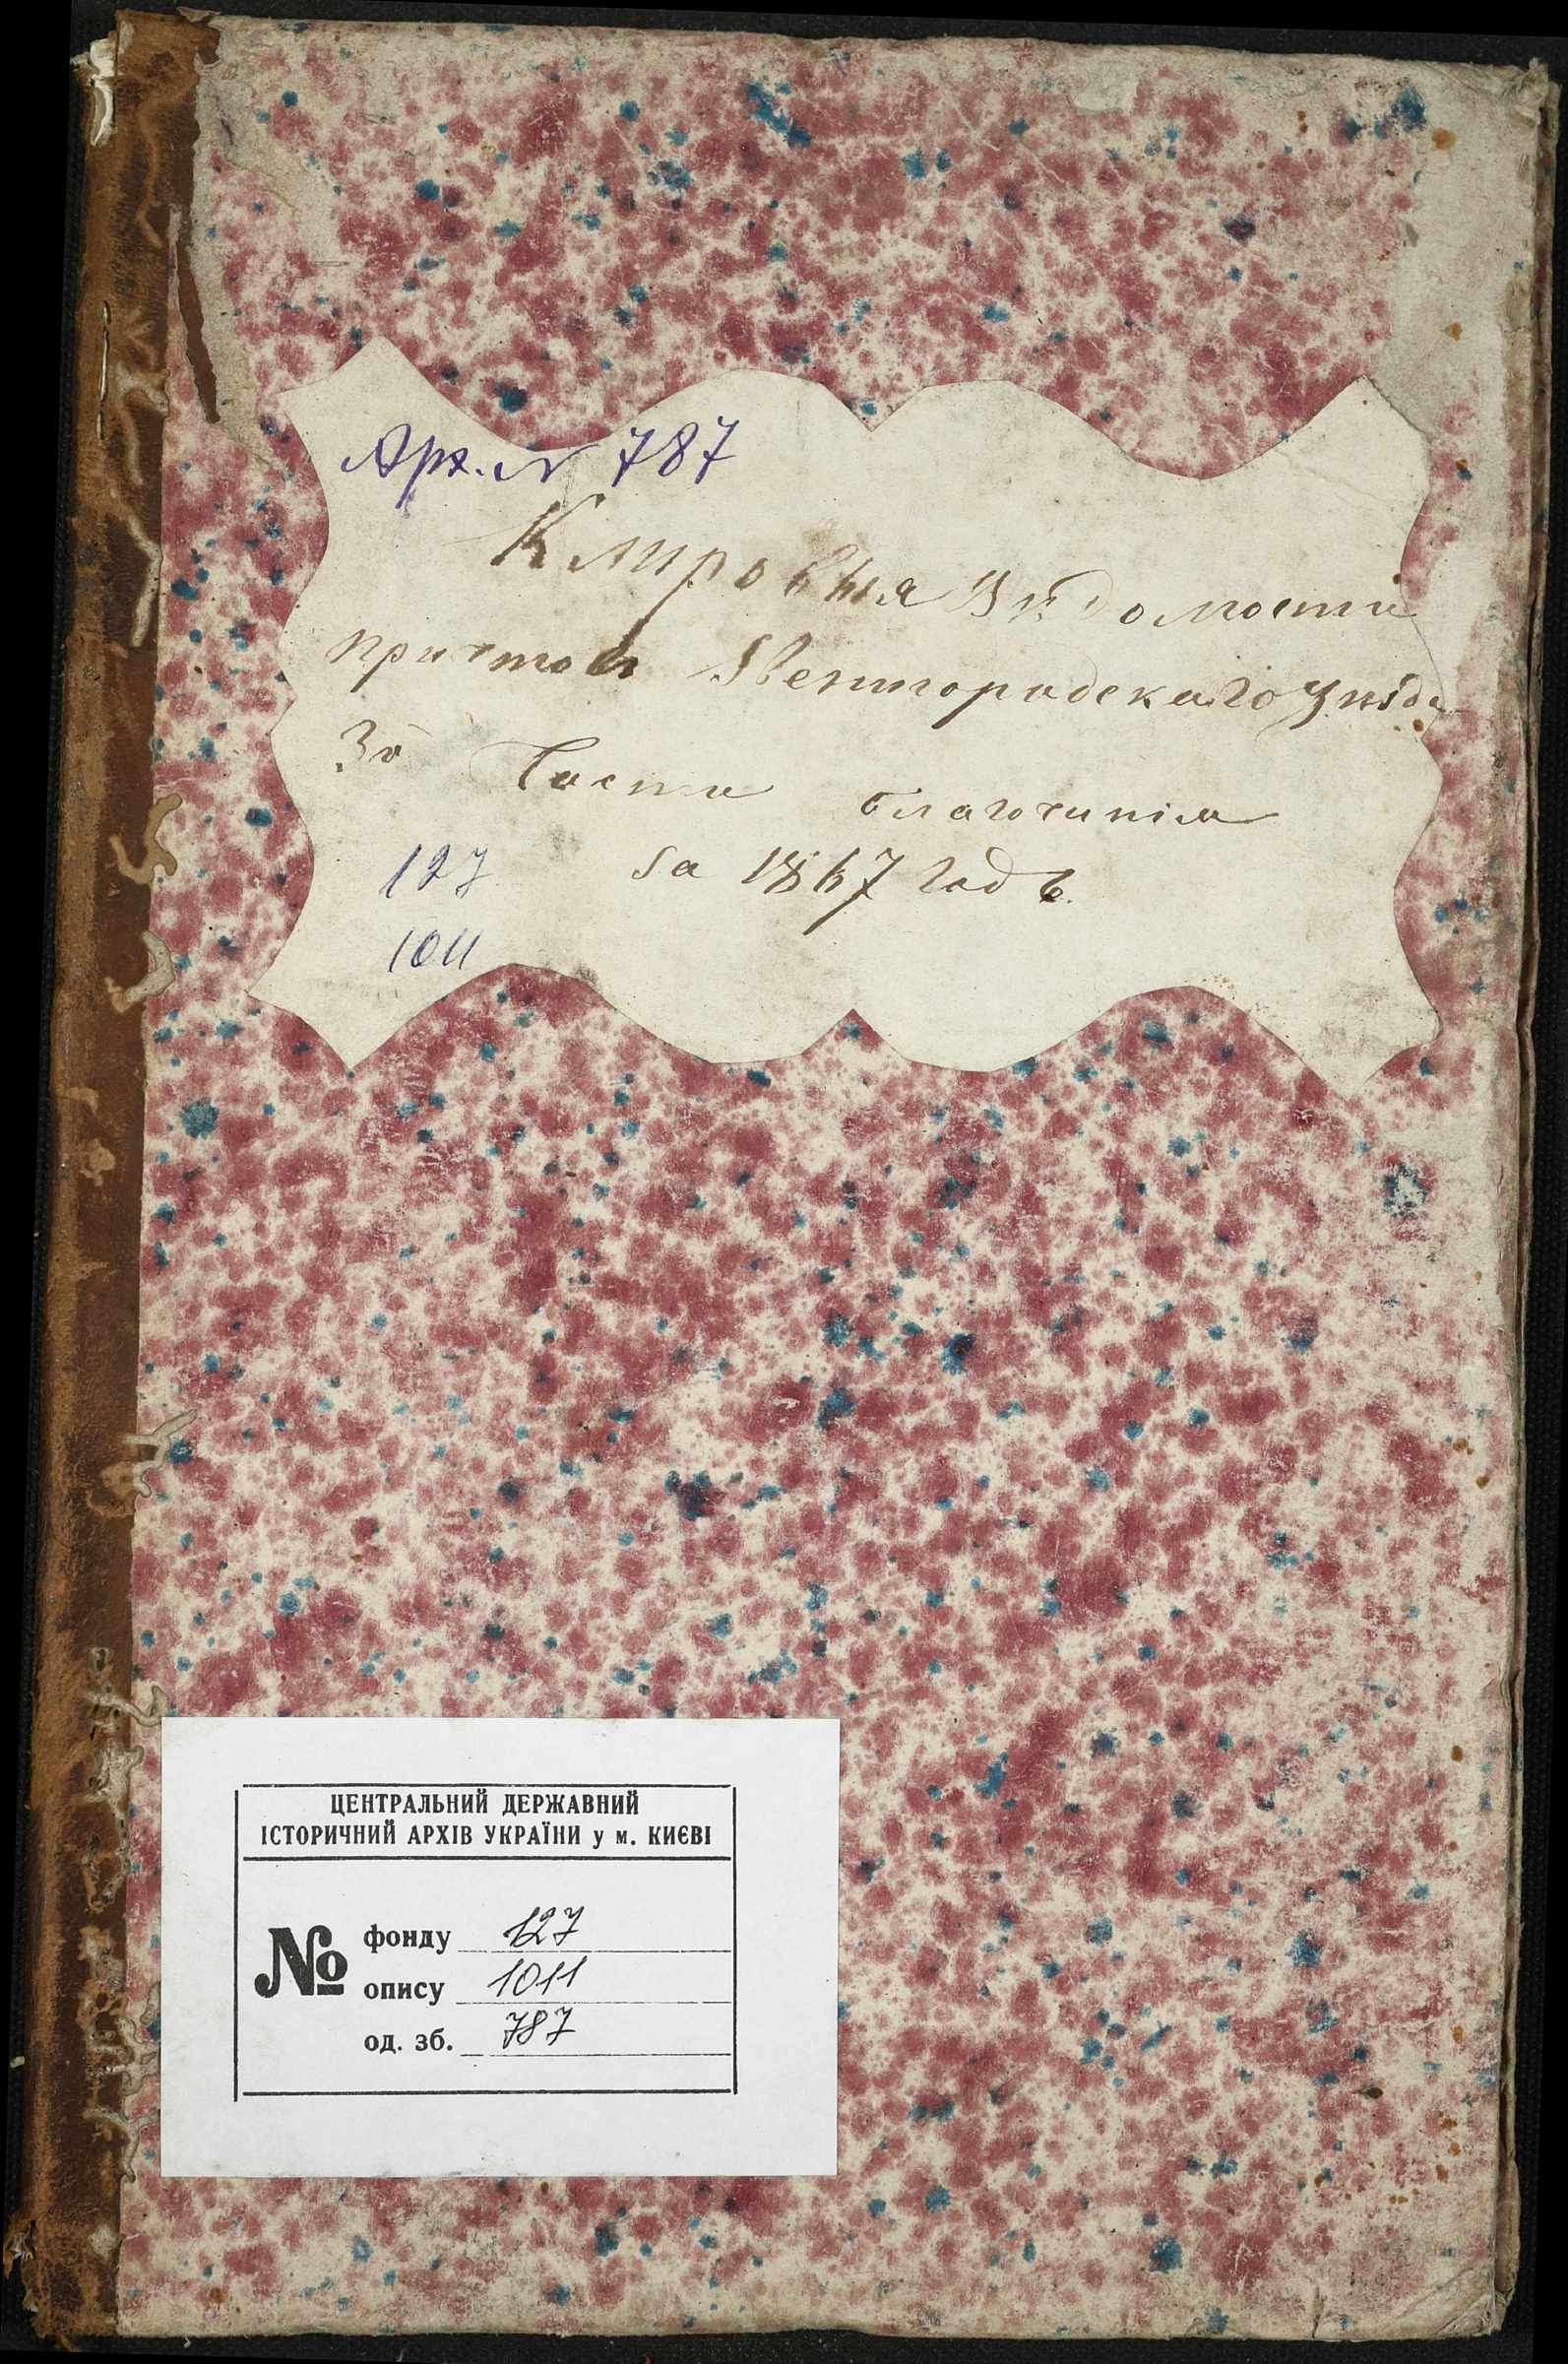 Арх. № 787
Клировыя Вѣдомости
причтовъ Звенигородскаго Уѣзда
3й Части благочинія
127 за 1867 годъ.
1011
ЦЕНТРАЛЬНИЙ ДЕРЖАВНИЙ
ІСТОРИЧНИЙ АРХІВ УКРАЇНИ у м. КИЄВІ
№ фонду 127
опису 1011
од. зб. 787